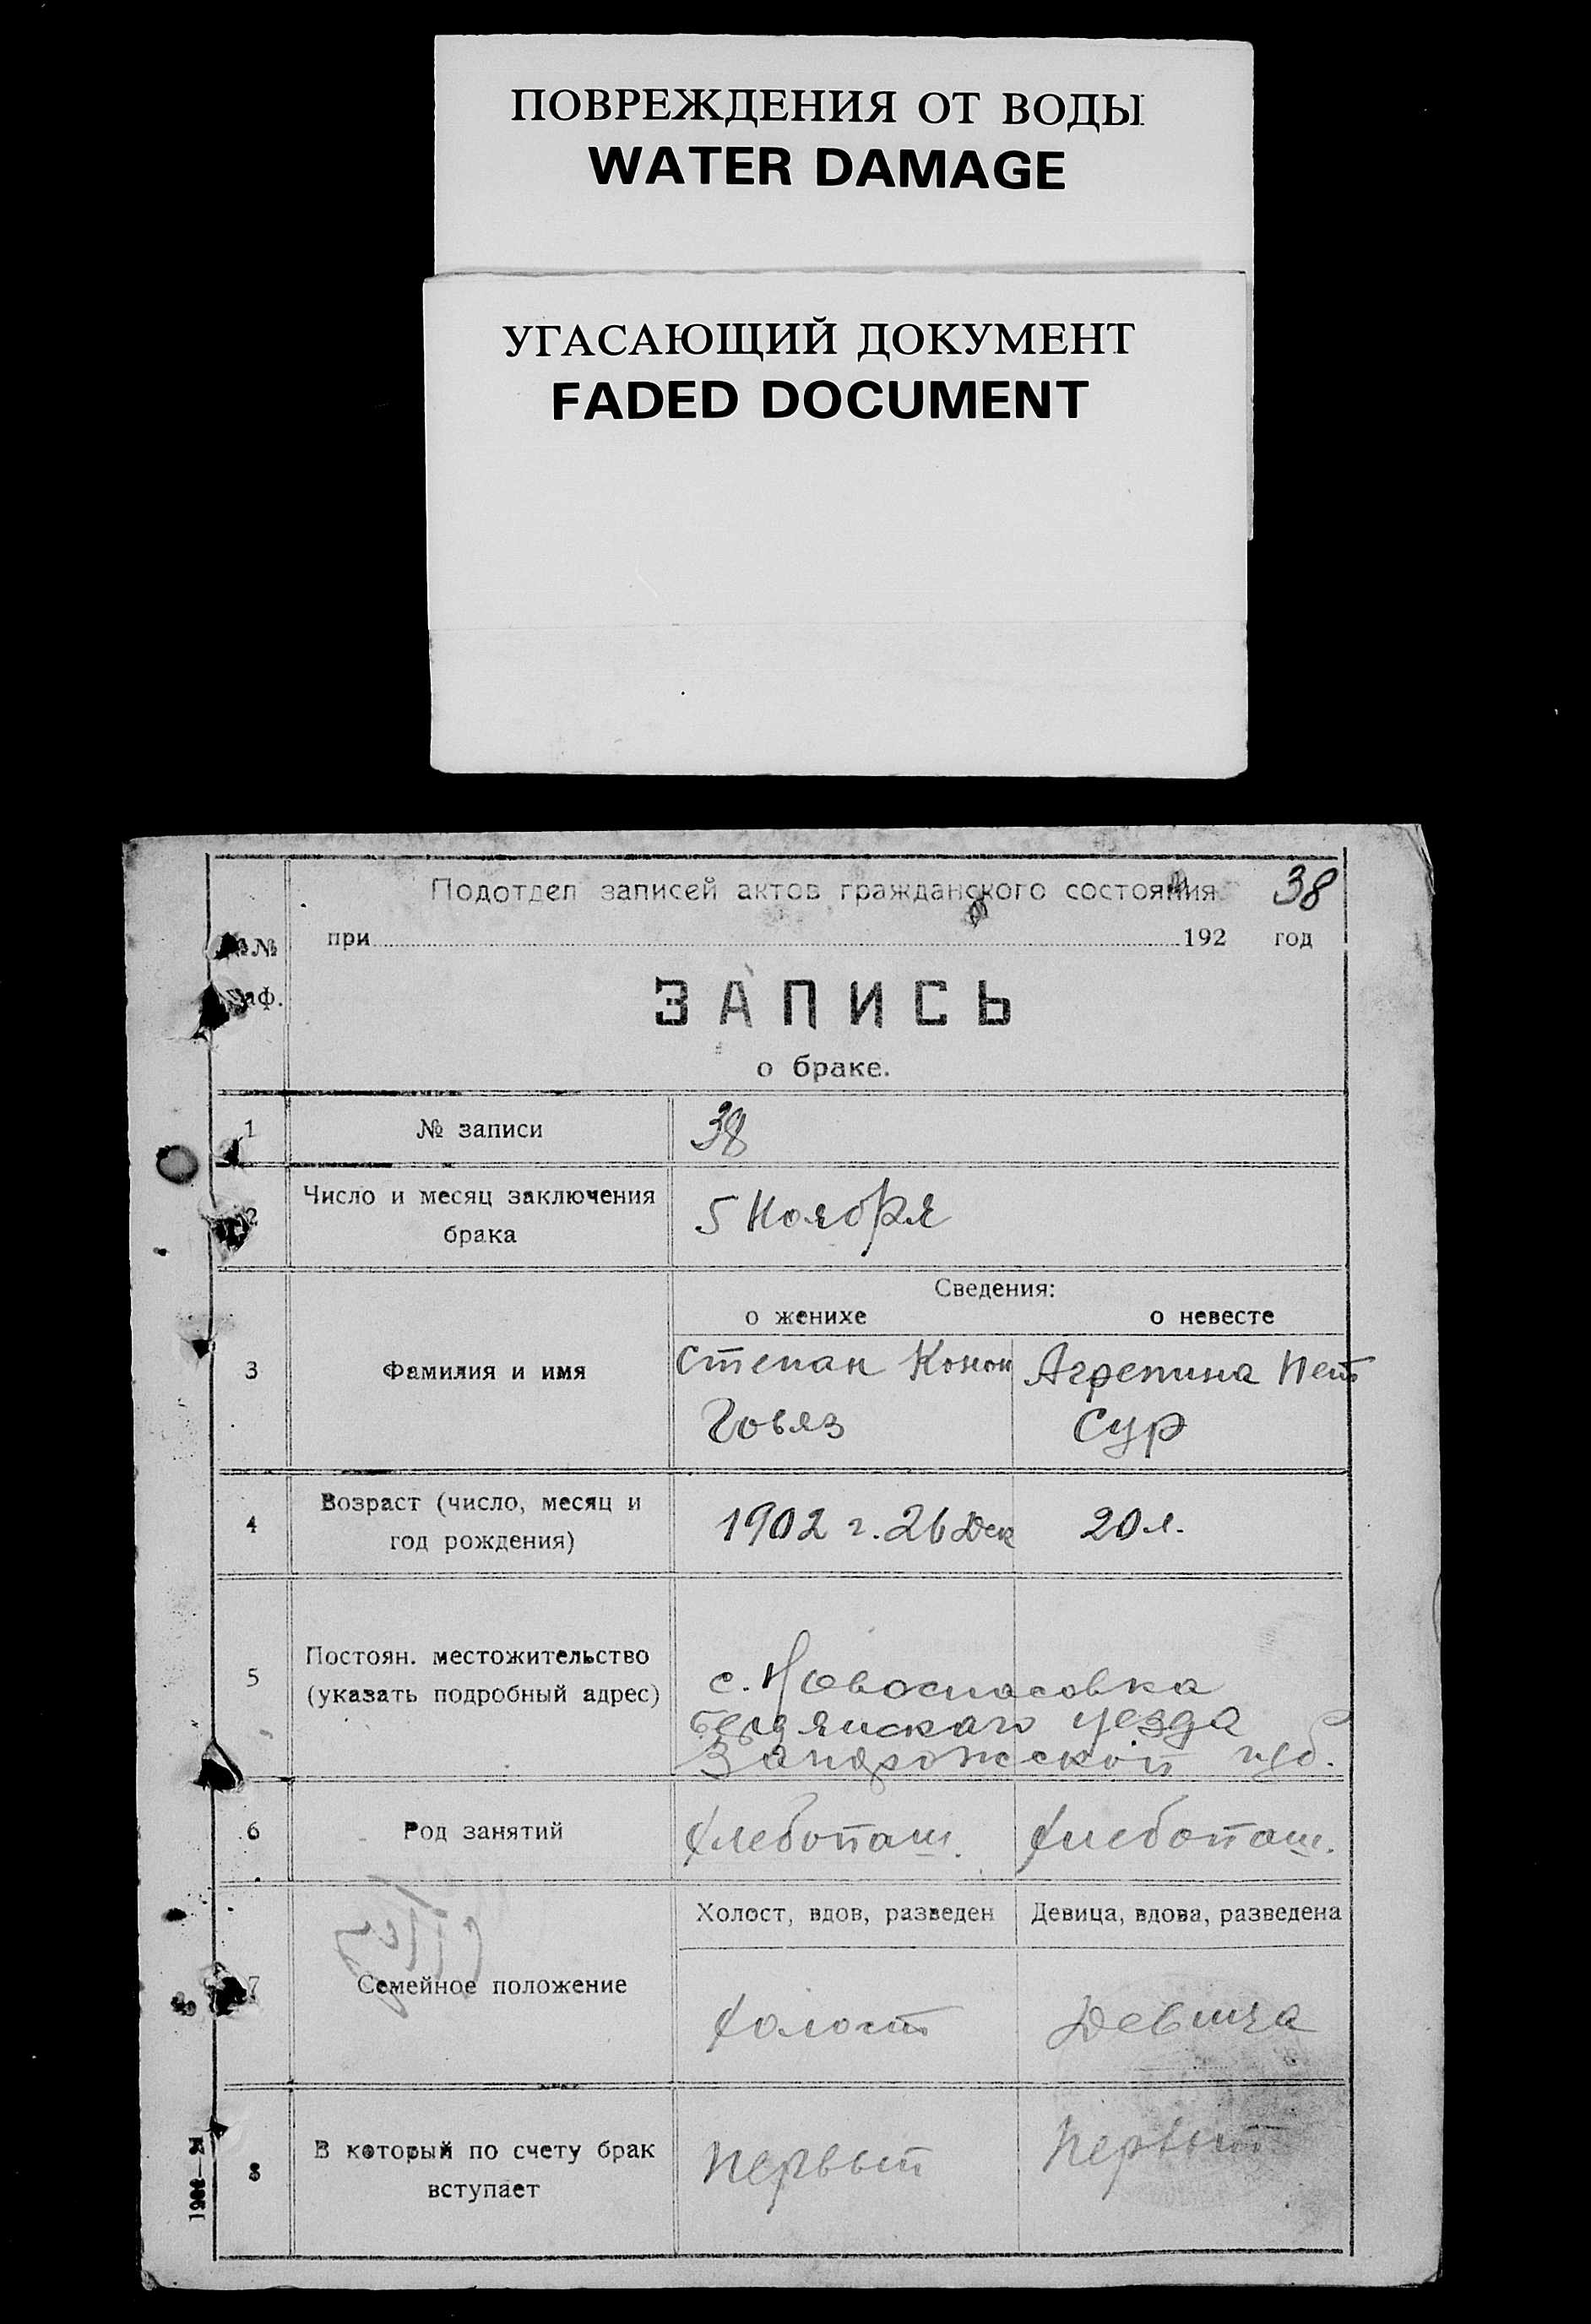 ПОВРЕЖДЕНИЯ ОТ ВОДЫ
WATER DAMAGE
УГАСАЮЩИЙ ДОКУМЕНТ
FADED DOCUMENT
Подотдел записей актов гражданского состояния 38
№
при 192 год
аф.
ЗАПИСЬ
о браке.
1 № записи 38
2 Число и месяц заключения
брака
5 Ноября
Сведения:
о женихе о невесте
3 Фамилия и имя
Степан Конон Агрепина Пет
Говяз Сур
4 Возраст (число, месяц и
год рождения)
1902 г. 26 Дек 20 л.
5 Постоян. местожительство
(указать подробный адрес)
с. Новоспасовка
Бердянскаго уезда
Запорожской губ.
6 Род занятий Хлебопаш. Хлебопаш.
Холост, вдов, разведен Девица, вдова, разведена
7 Семейное положение
Холост Девица
8 В который по счету брак
вступает
Первый Первый